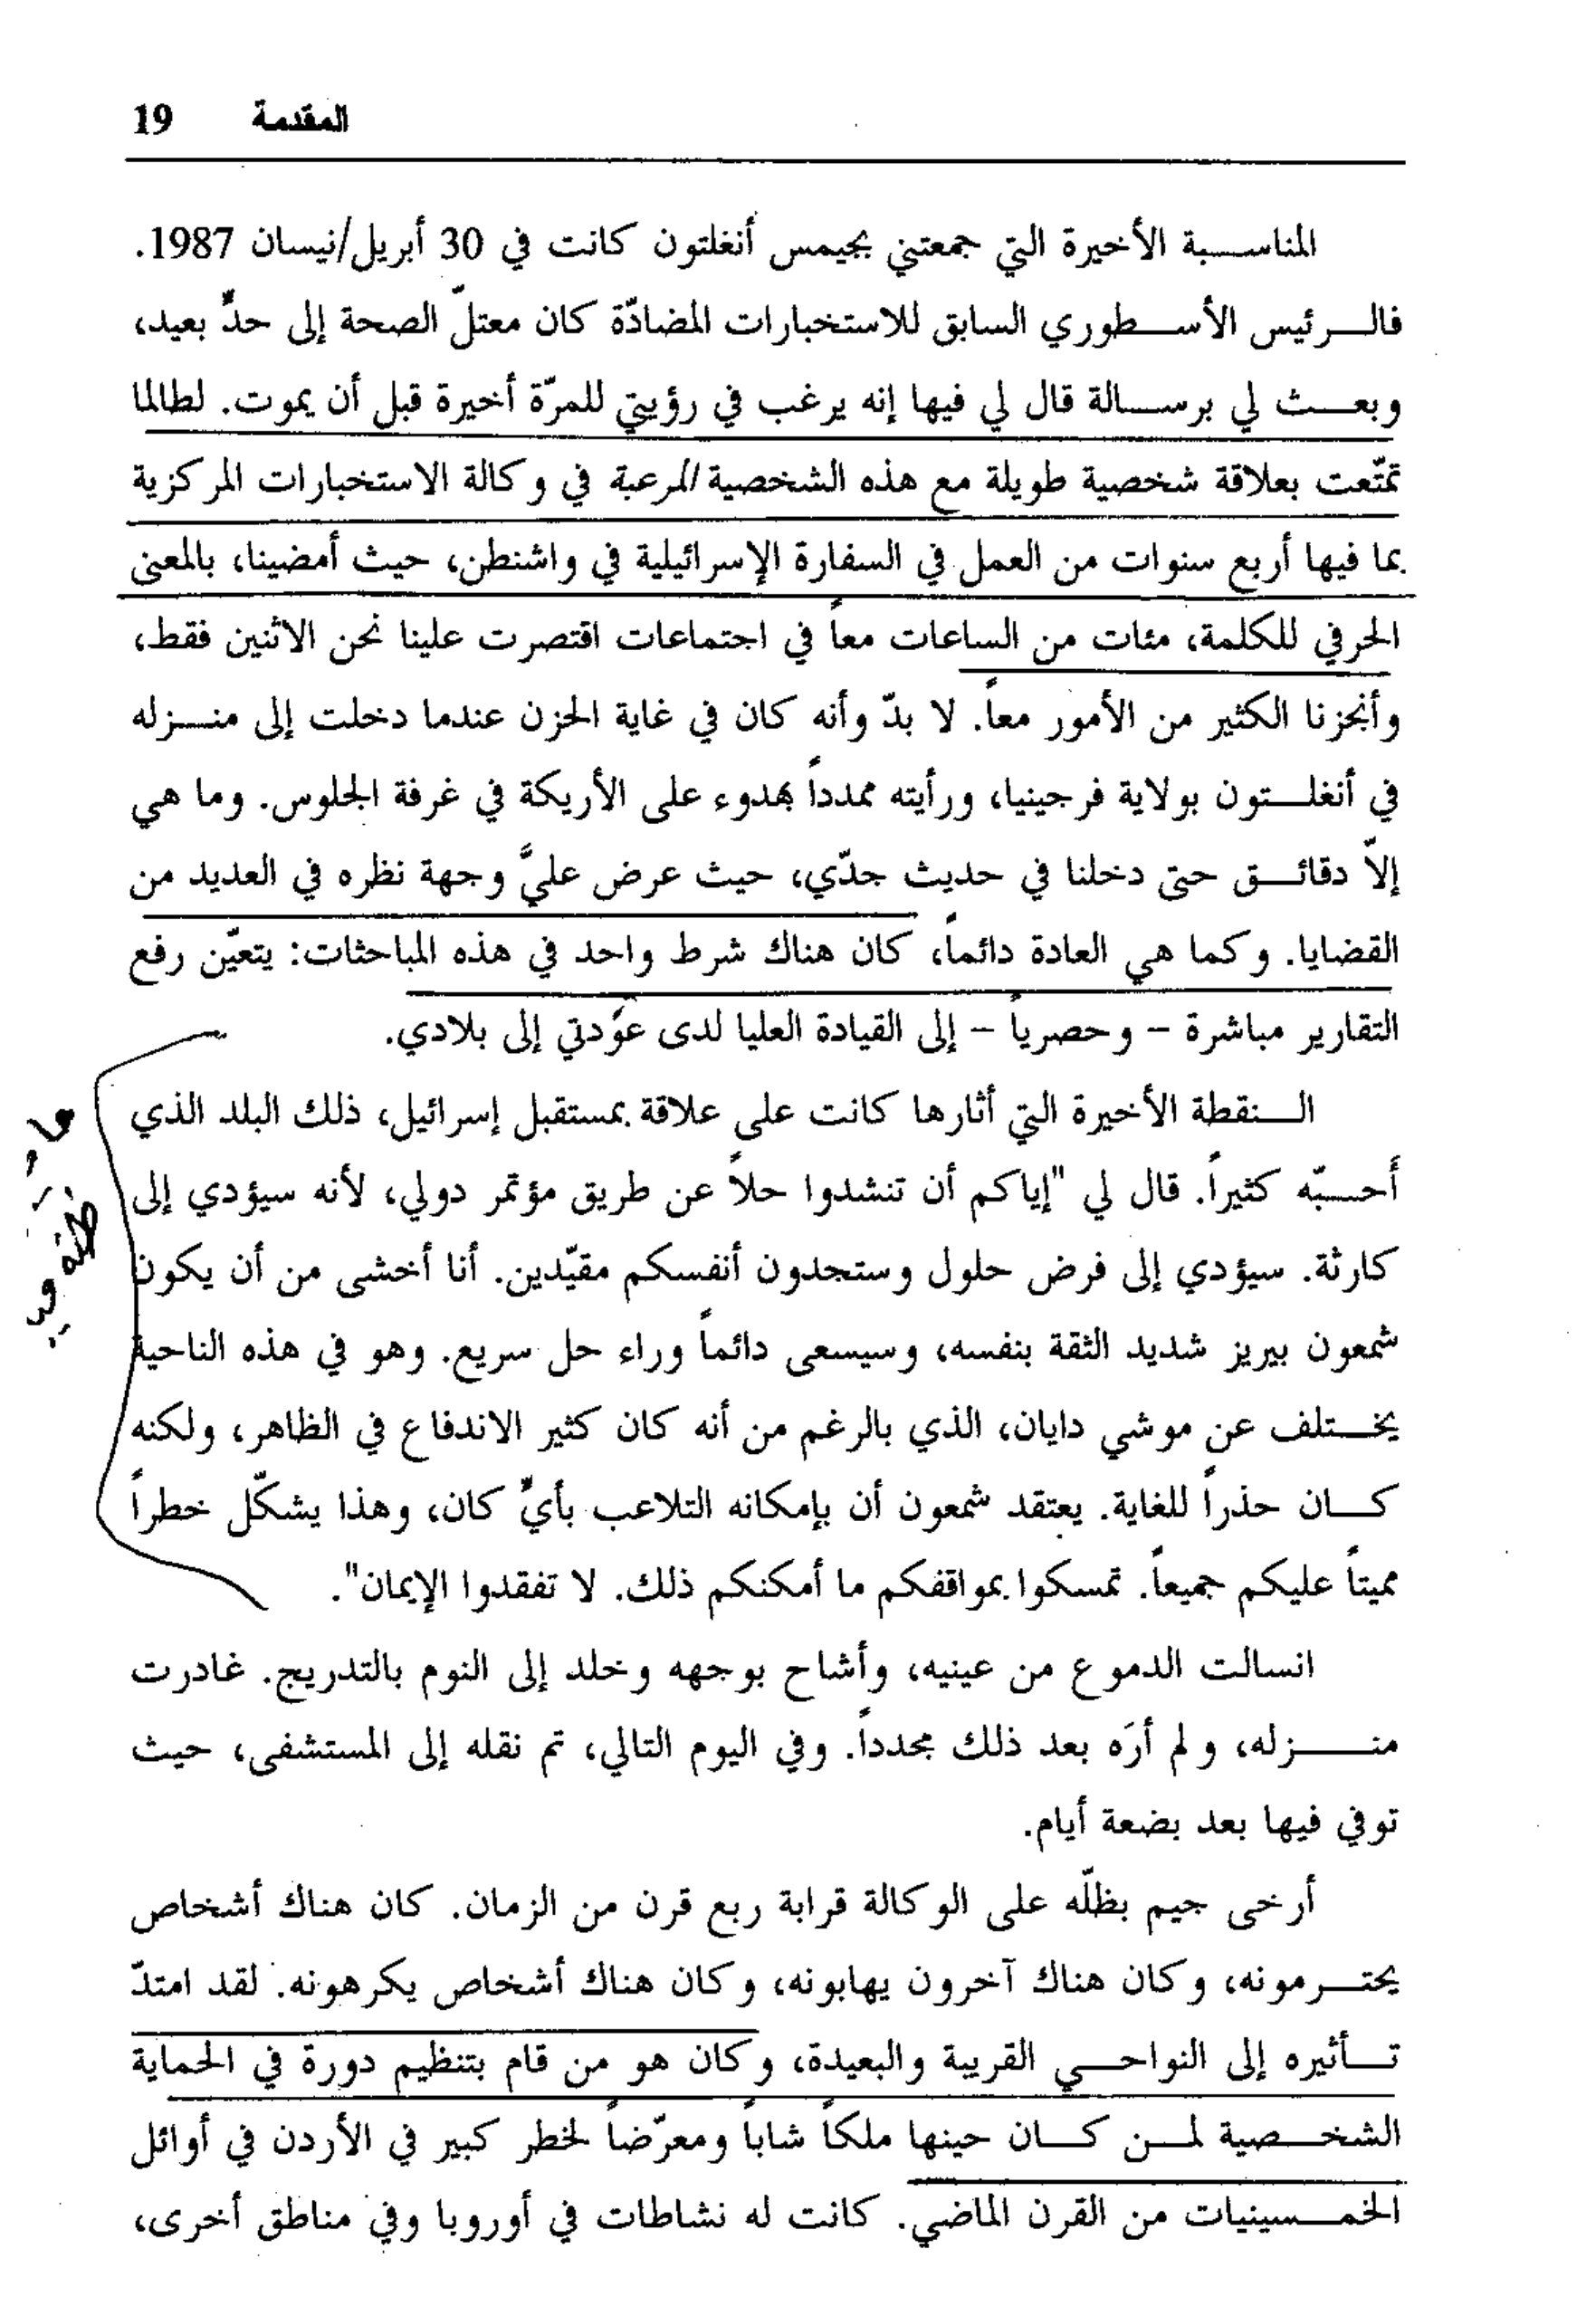 المقدمة 19
المناسبة الأخيرة التي جمعتني بجيمس أنغلتون كانت في 30 أبريل/نيسان 1987.
فالرئيس الأسطوري السابق للاستخبارات المضادّة كان معتلّ الصحة إلى حدٍّ بعيد،
وبعث لي برسالة قال لي فيها إنه يرغب في رؤيتي للمرّة أخيرة قبل أن يموت. لطالما
تمتّعت بعلاقة شخصية طويلة مع هذه الشخصية المرعبة في وكالة الاستخبارات المركزية
بما فيها أربع سنوات من العمل في السفارة الإسرائيلية في واشنطن، حيث أمضينا، بالمعنى
الحرفي للكلمة، مئات من الساعات معاً في اجتماعات اقتصرت علينا نحن الاثنين فقط،
وأنجزنا الكثير من الأمور معاً. لا بدّ وأنه كان في غاية الحزن عندما دخلت إلى منزله
في أنغلتون بولاية فرجينيا، ورأيته ممدداً بهدوء على الأريكة في غرفة الجلوس. وما هي
إلاّ دقائق حتى دخلنا في حديث جدّي، حيث عرض عليَّ وجهة نظره في العديد من
القضايا. وكما هي العادة دائماً، كان هناك شرط واحد في هذه المباحثات: يتعيّن رفع
التقارير مباشرة - وحصرياً - إلى القيادة العليا لدى عَوّدتي إلى بلادي.
النقطة الأخيرة التي أثارها كانت على علاقة بمستقبل إسرائيل، ذلك البلد الذي
أَحبّه كثيراً. قال لي "إياكم أن تنشدوا حلاً عن طريق مؤتمر دولي، لأنه سيؤدي إلى
كارثة. سيؤدي إلى فرض حلول وستجدون أنفسكم مقيّدين. أنا أخشى من أن يكون
شمعون بيريز شديد الثقة بنفسه، وسيسعى دائماً وراء حل سريع. وهو في هذه الناحية
يختلف عن موشي دايان، الذي بالرغم من أنه كان كثير الاندفاع في الظاهر، ولكنه
كان حذراً للغاية. يعتقد شمعون أن بإمكانه التلاعب بأيٍّ كان، وهذا يشكّل خطراً
مميتاً عليكم جميعاً. تمسكوا بمواقفكم ما أمكنكم ذلك. لا تفقدوا الإيمان".
انسالت الدموع من عينيه، وأشاح بوجهه وخلد إلى النوم بالتدريج. غادرت
منزله، ولم أرَه بعد ذلك مجدداً. وفي اليوم التالي، تم نقله إلى المستشفى، حيث
توفي فيها بعد بضعة أيام.
أرخى جيم بظلّه على الوكالة قرابة ربع قرن من الزمان. كان هناك أشخاص
يحترمونه، وكان هناك آخرون يهابونه، وكان هناك أشخاص يكرهونه. لقد امتدّ
تأثيره إلى النواحي القريبة والبعيدة، وكان هو من قام بتنظيم دورة في الحماية
الشخصية لمن كان حينها ملكاً شاباً ومعرّضاً لخطر كبير في الأردن في أوائل
الخمسينيات من القرن الماضي. كانت له نشاطات في أوروبا وفي مناطق أخرى،